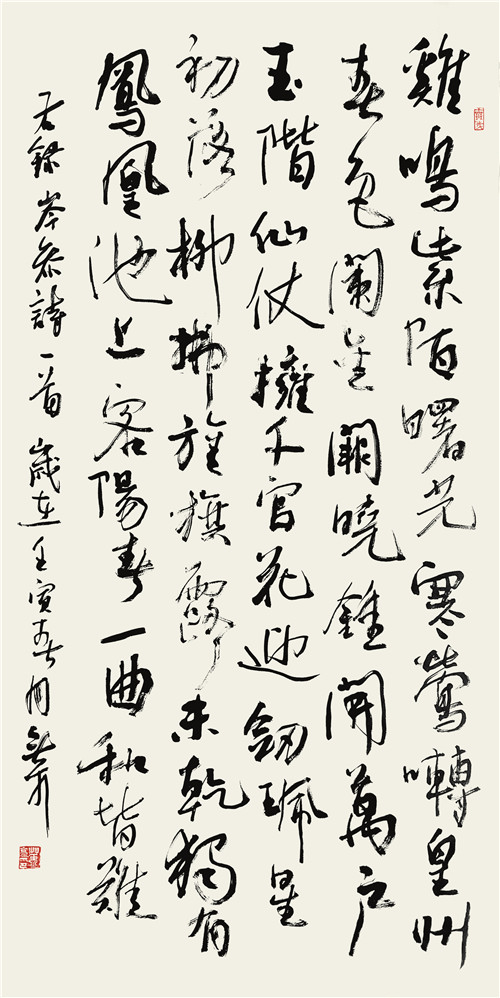 雞鳴紫陌曙光寒鶯囀皇州
春色闌金闕曉鍾開萬戶
玉階仙仗擁千官花迎劍珮星
初落柳拂旌旗露未乾獨有
鳳凰池上客陽春一曲和皆難
右錄岑參詩一首歲在壬寅春月